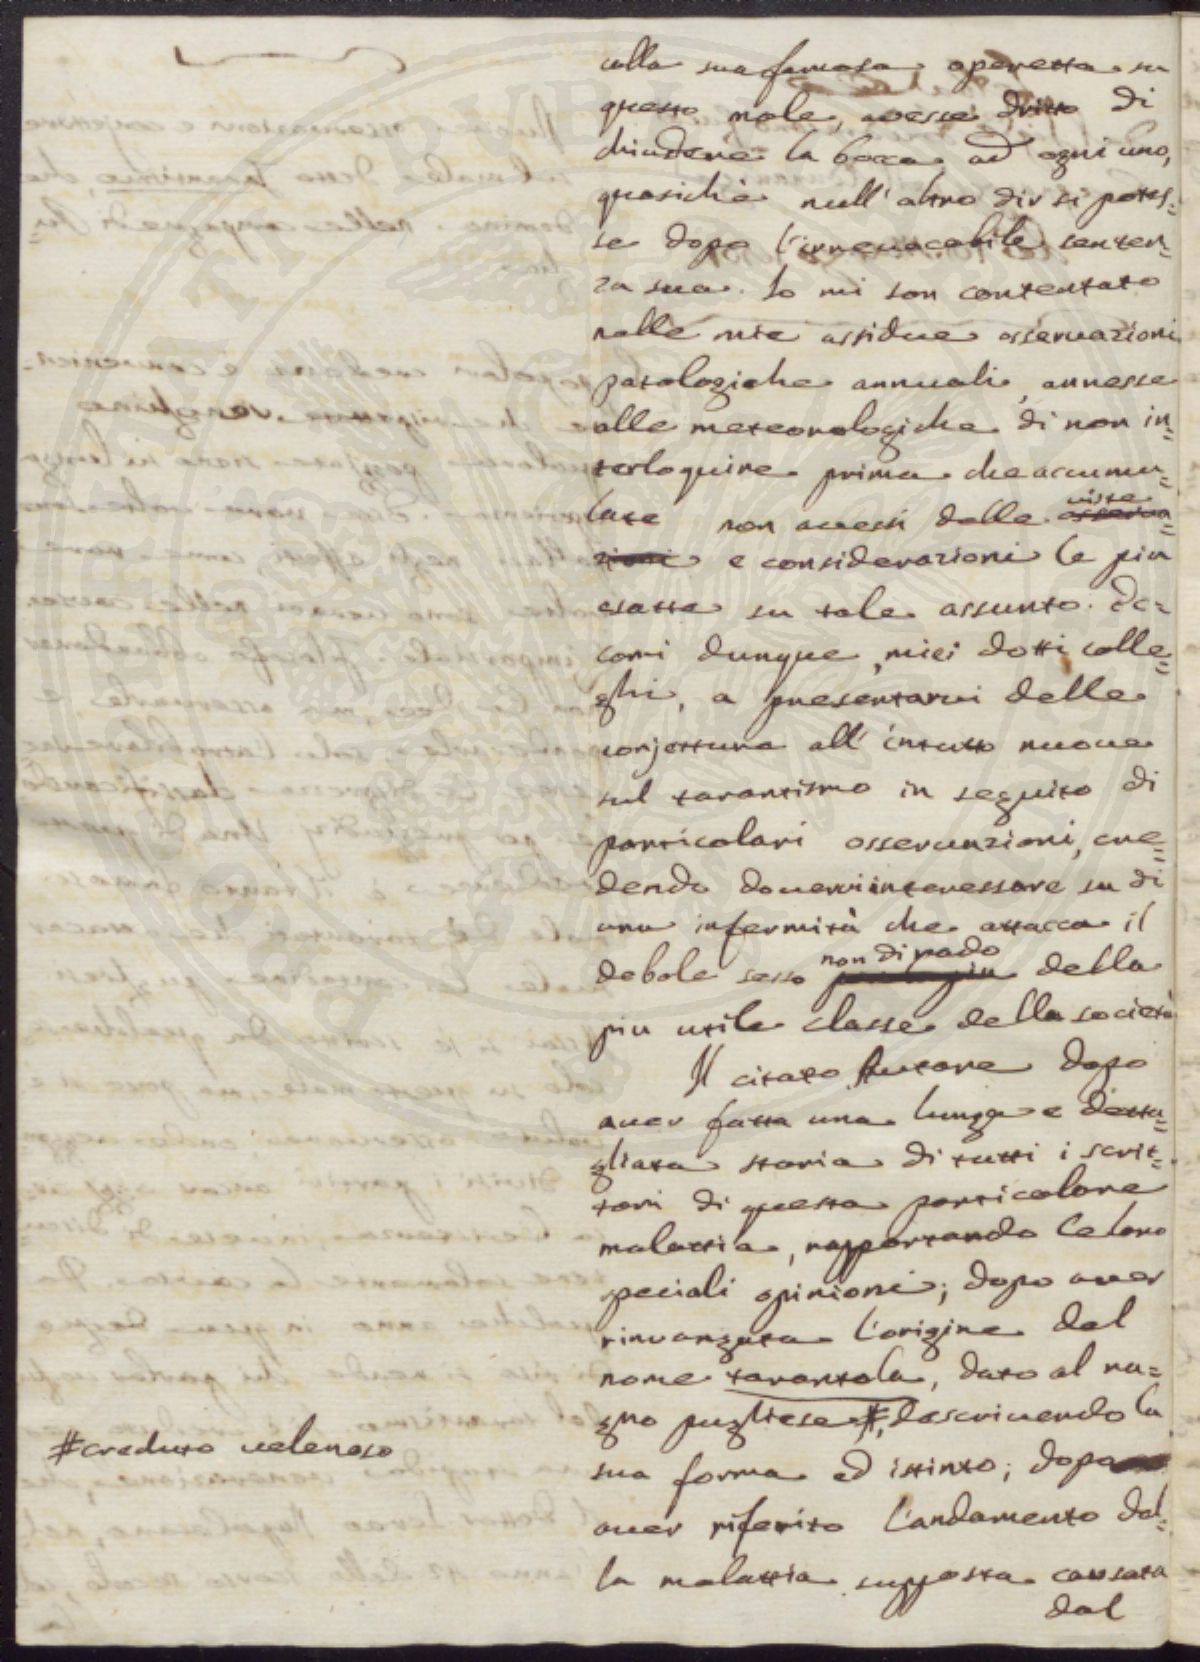 colla sua famosa operetta su
questo male, avesse dritto di
chiudere la bocca ad ogni uno,
quasichè null'altro dir si potes=
se dopo l'irrevocabile senten=
za sua. Io mi son contentato
nelle mie assidue osservazioni
patologiche annuali, annesse
alle meteorologiche di non in=
terloquire prima che accumu=
late non avessi delle viste osserva=
zioni e considerazioni le piu
esatte su tale assunto. Ec=
comi dunque, miei dotti colle=
ghi, a presentarvi delle
conjetture all'intutto nuove
sul tarantismo in seguito di
particolari osservazioni, cre=
dendo dovervi interessare su di
una infermità che attacca il
debole sesso non di rado della
piu utile classe della società
Il citato Autore dopo
aver fatta una lunga e detta=
gliata storia di tutti i scrit=
tori di questa particolare
malattia, rapportando le loro
speciali opinioni; dopo aver
rinvangata l'origine del
nome tarantola, dato al ra=
gno pugliese #, descrivendo la
sua forma ed istinto; dopo
aver riferito l'andamento del=
la malattia supposta causata
dal
#creduto velenoso